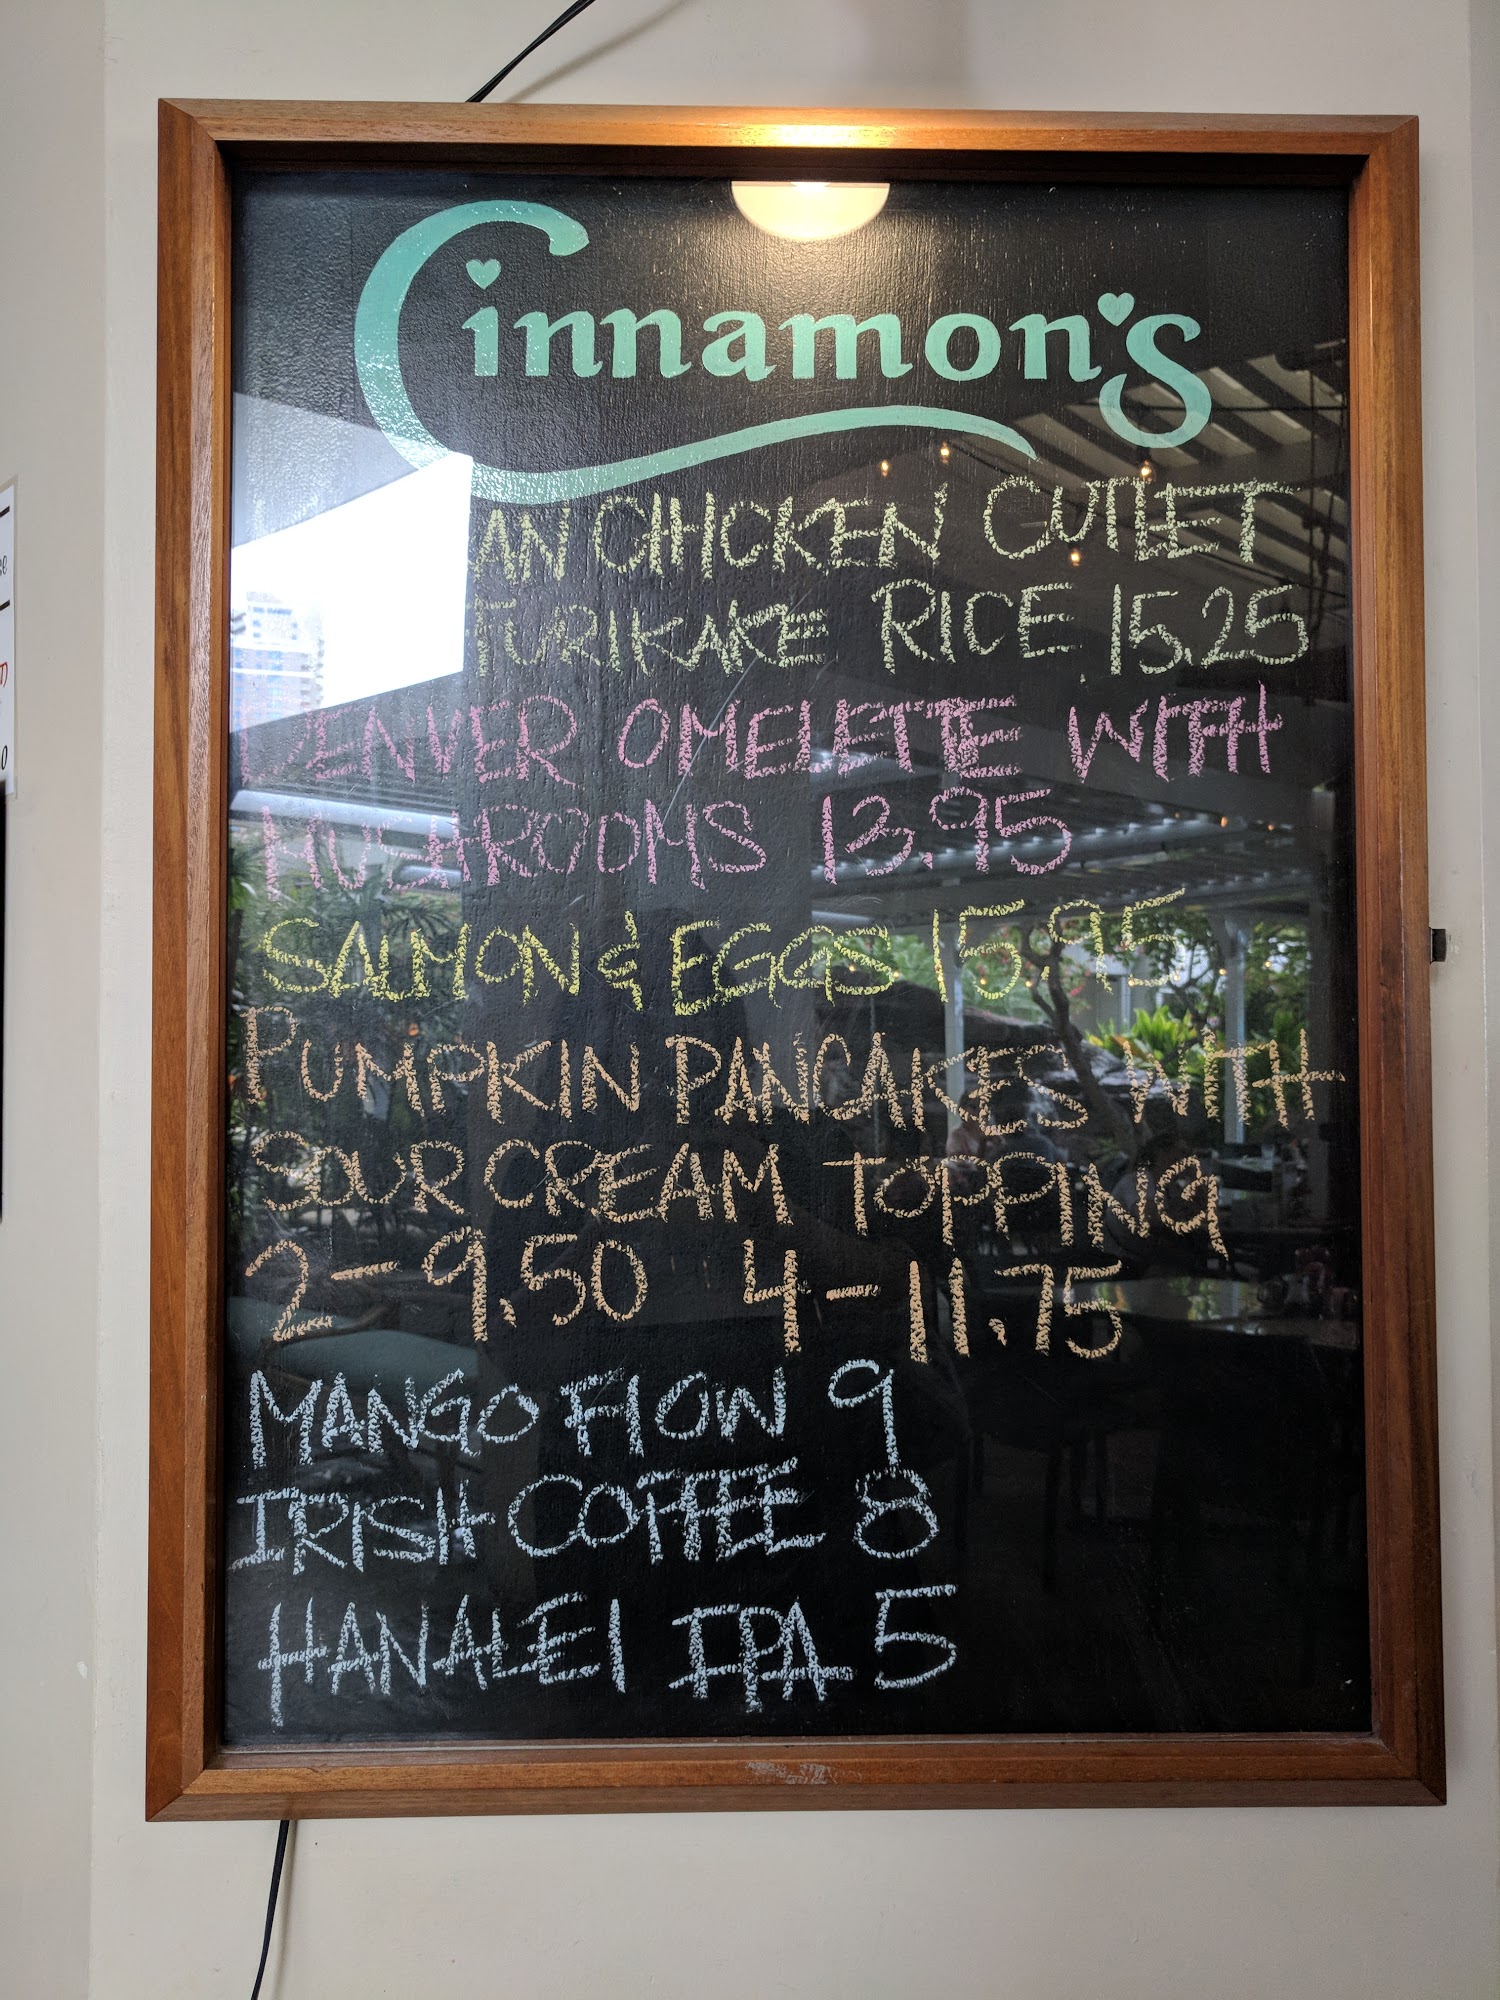 Cinnamon's
AN CHICKEN CUTLET
FURIKAKE RICE 15.25
DENVER OMELETTE WITH
MUSHROOMS 13.95
SALMON & EGGS 15.95
PUMPKIN PANCAKES WITH
SOUR CREAM TOPPING
2-9.50 4-11.75
MANGO FLOW 9
IRISH COFFEE 8
HANALEI IPA 5